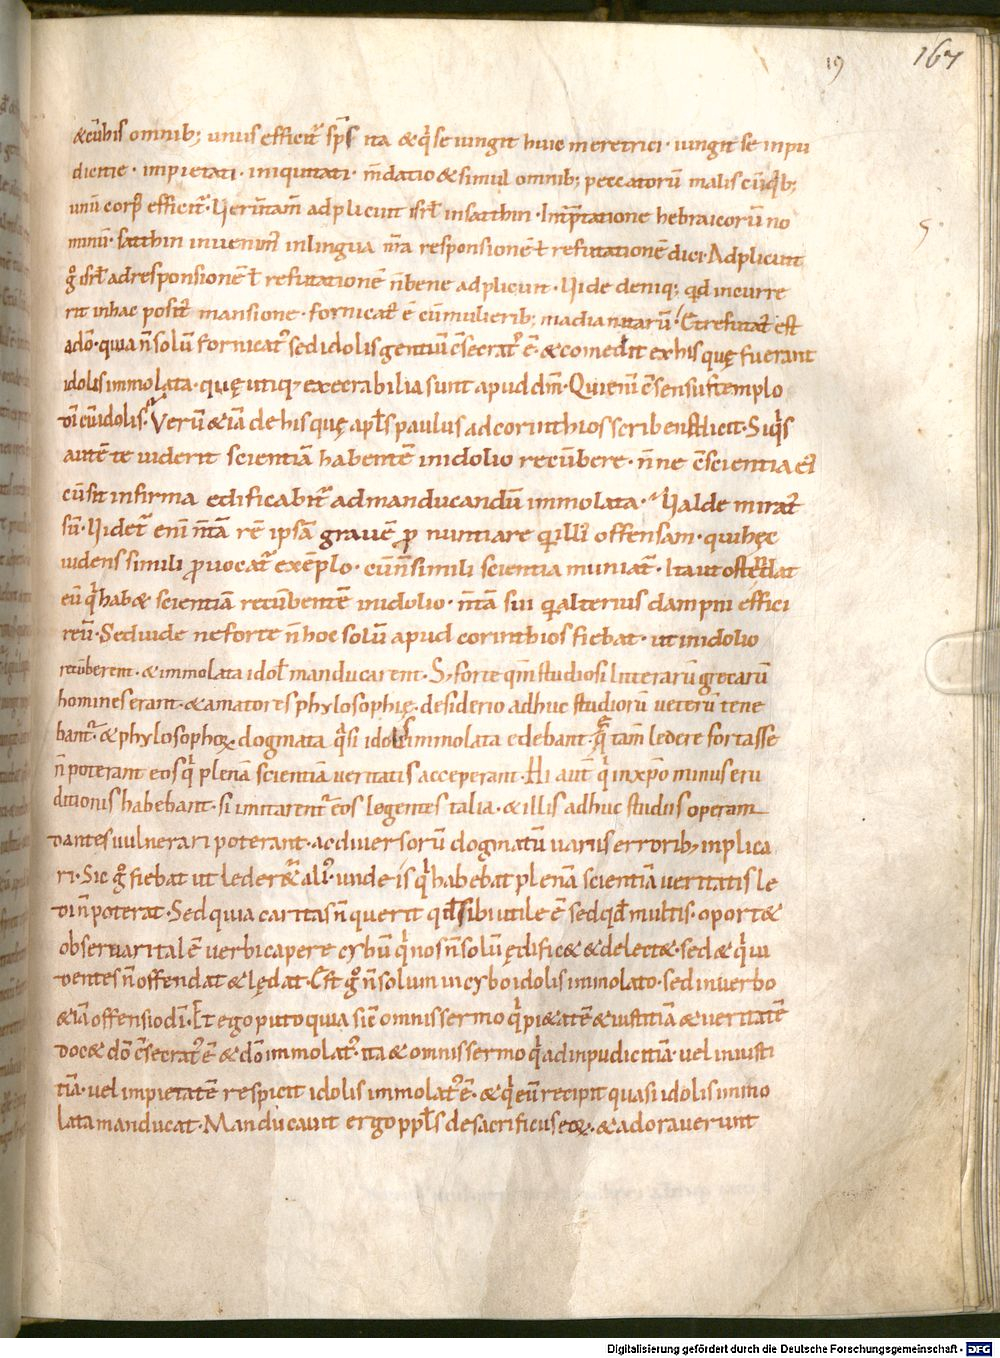 19 167
&cū his omnib; unus efficit̄ sp̄s ita & q̇ se iungit huic meretrici · iungit se inpu
dicitie · impietati · iniquitati · m̄datio & simul omnib; peccatorū malis cū q̇b;
unū corp̄ efficit̄ · Uerūtam̄ adplicuit isrl̄ in satthin · Int̄p̄tatione hebraicorū no
minū · satthin invenim̄ in lingua n̄ra responsionē ł refutationē dici · Adplicuit
5
g̊ isrl̄ ad responsionē ł refutationē n̄ bene adplicuit · Uide deniq; qđ incurre
rit in hac posit̄ mansione · fornicat̄ ē cū mulierib; madianitarū · Et refutat̄ est
a dō · quia n̄ solū fornicat̄ sed idolis gentiū c̄secrat̄ ē · & comedit ex his quę fuerant
idolis immolata · quę utiq; execrabilia sunt apud dm̄ · Qui enī c̄sensus ē templo
dī cū idolis · Verū & iā de his quę apl̄s paulus ad corinthios scribens dicit · Si q̇s
autē te viderit scientiā habentē in idolio recūbere · n̄ne c̄scientia ei
cū sit infirma edificabit̄ ad manducandū immolata · Ualde mirat̄
sū · Uidet̄ enī m̄tā rē ipsā gravē pronuntiare per illi offensam · qui hęc
videns simili provocat̄ exēplo · cū n̄ simili scientia muniat̄ · Ita ut ostēdat
eū q̇ hab& scientiā recūbentē in idolio · m̄tā sui per alterius dampni effici
reū · Sed vide ne forte n̄ hoc solū apud corinthios fiebat · ut in idolio
recūberent · & immolata idol̄ manducarent · S; forte qm̄ studiosi litterarū grecarū
homines erant · & amatores phylosophię · desiderio adhuc studiorū veterū tene
bant̄ · & phylosophoꝝ dogmata q̇si idolis immolata edebant · Quę tam̄ ledere fortasse
n̄ poterant eos q̇ plenā scientiā veritatis acceperant · Hi aut̄ q̇ in xp̄o minus eru
ditionis habebant · si imitarent̄ eos legentes talia · & illis adhuc studiis operam
dantes vulnerari poterant · ac diversorū dogmatū variis errorib; inplica
ri · Sic g̊ fiebat ut leder& alī · unde is q̇ habebat plenā scientiā veritatis le
di n̄ poterat · Sed quia caritas n̄ querit qđ sibi utile ē sed qđ multis · oport&
observari talē verbi capere cybū q̇ nos n̄ solū ędific& & delect& · sed & q̇ vi
dentes n̄ offendat & lędat · Est g̊ n̄ solum in cybo idolis immolato · sed in verbo
& iā offensio dī · Et ego puto quia sic̄ omnis sermo q̇ pi&atē & iustitiā & veritatē
doc& dō c̄secrat̄ ē & dō immolat̄ · ita & omnis sermo q̇ ad inpudicitiā · vel iniusti
tiā · vel impietatē respicit idolis immolat̄ ē · & q̇ eū recipit quasi idolis immo
lata manducat · Manducavit ergo ppl̄s de sacrificiis eoꝝ · & adoraverunt
Digitalisierung gefördert durch die Deutsche Forschungsgemeinschaft - DFG